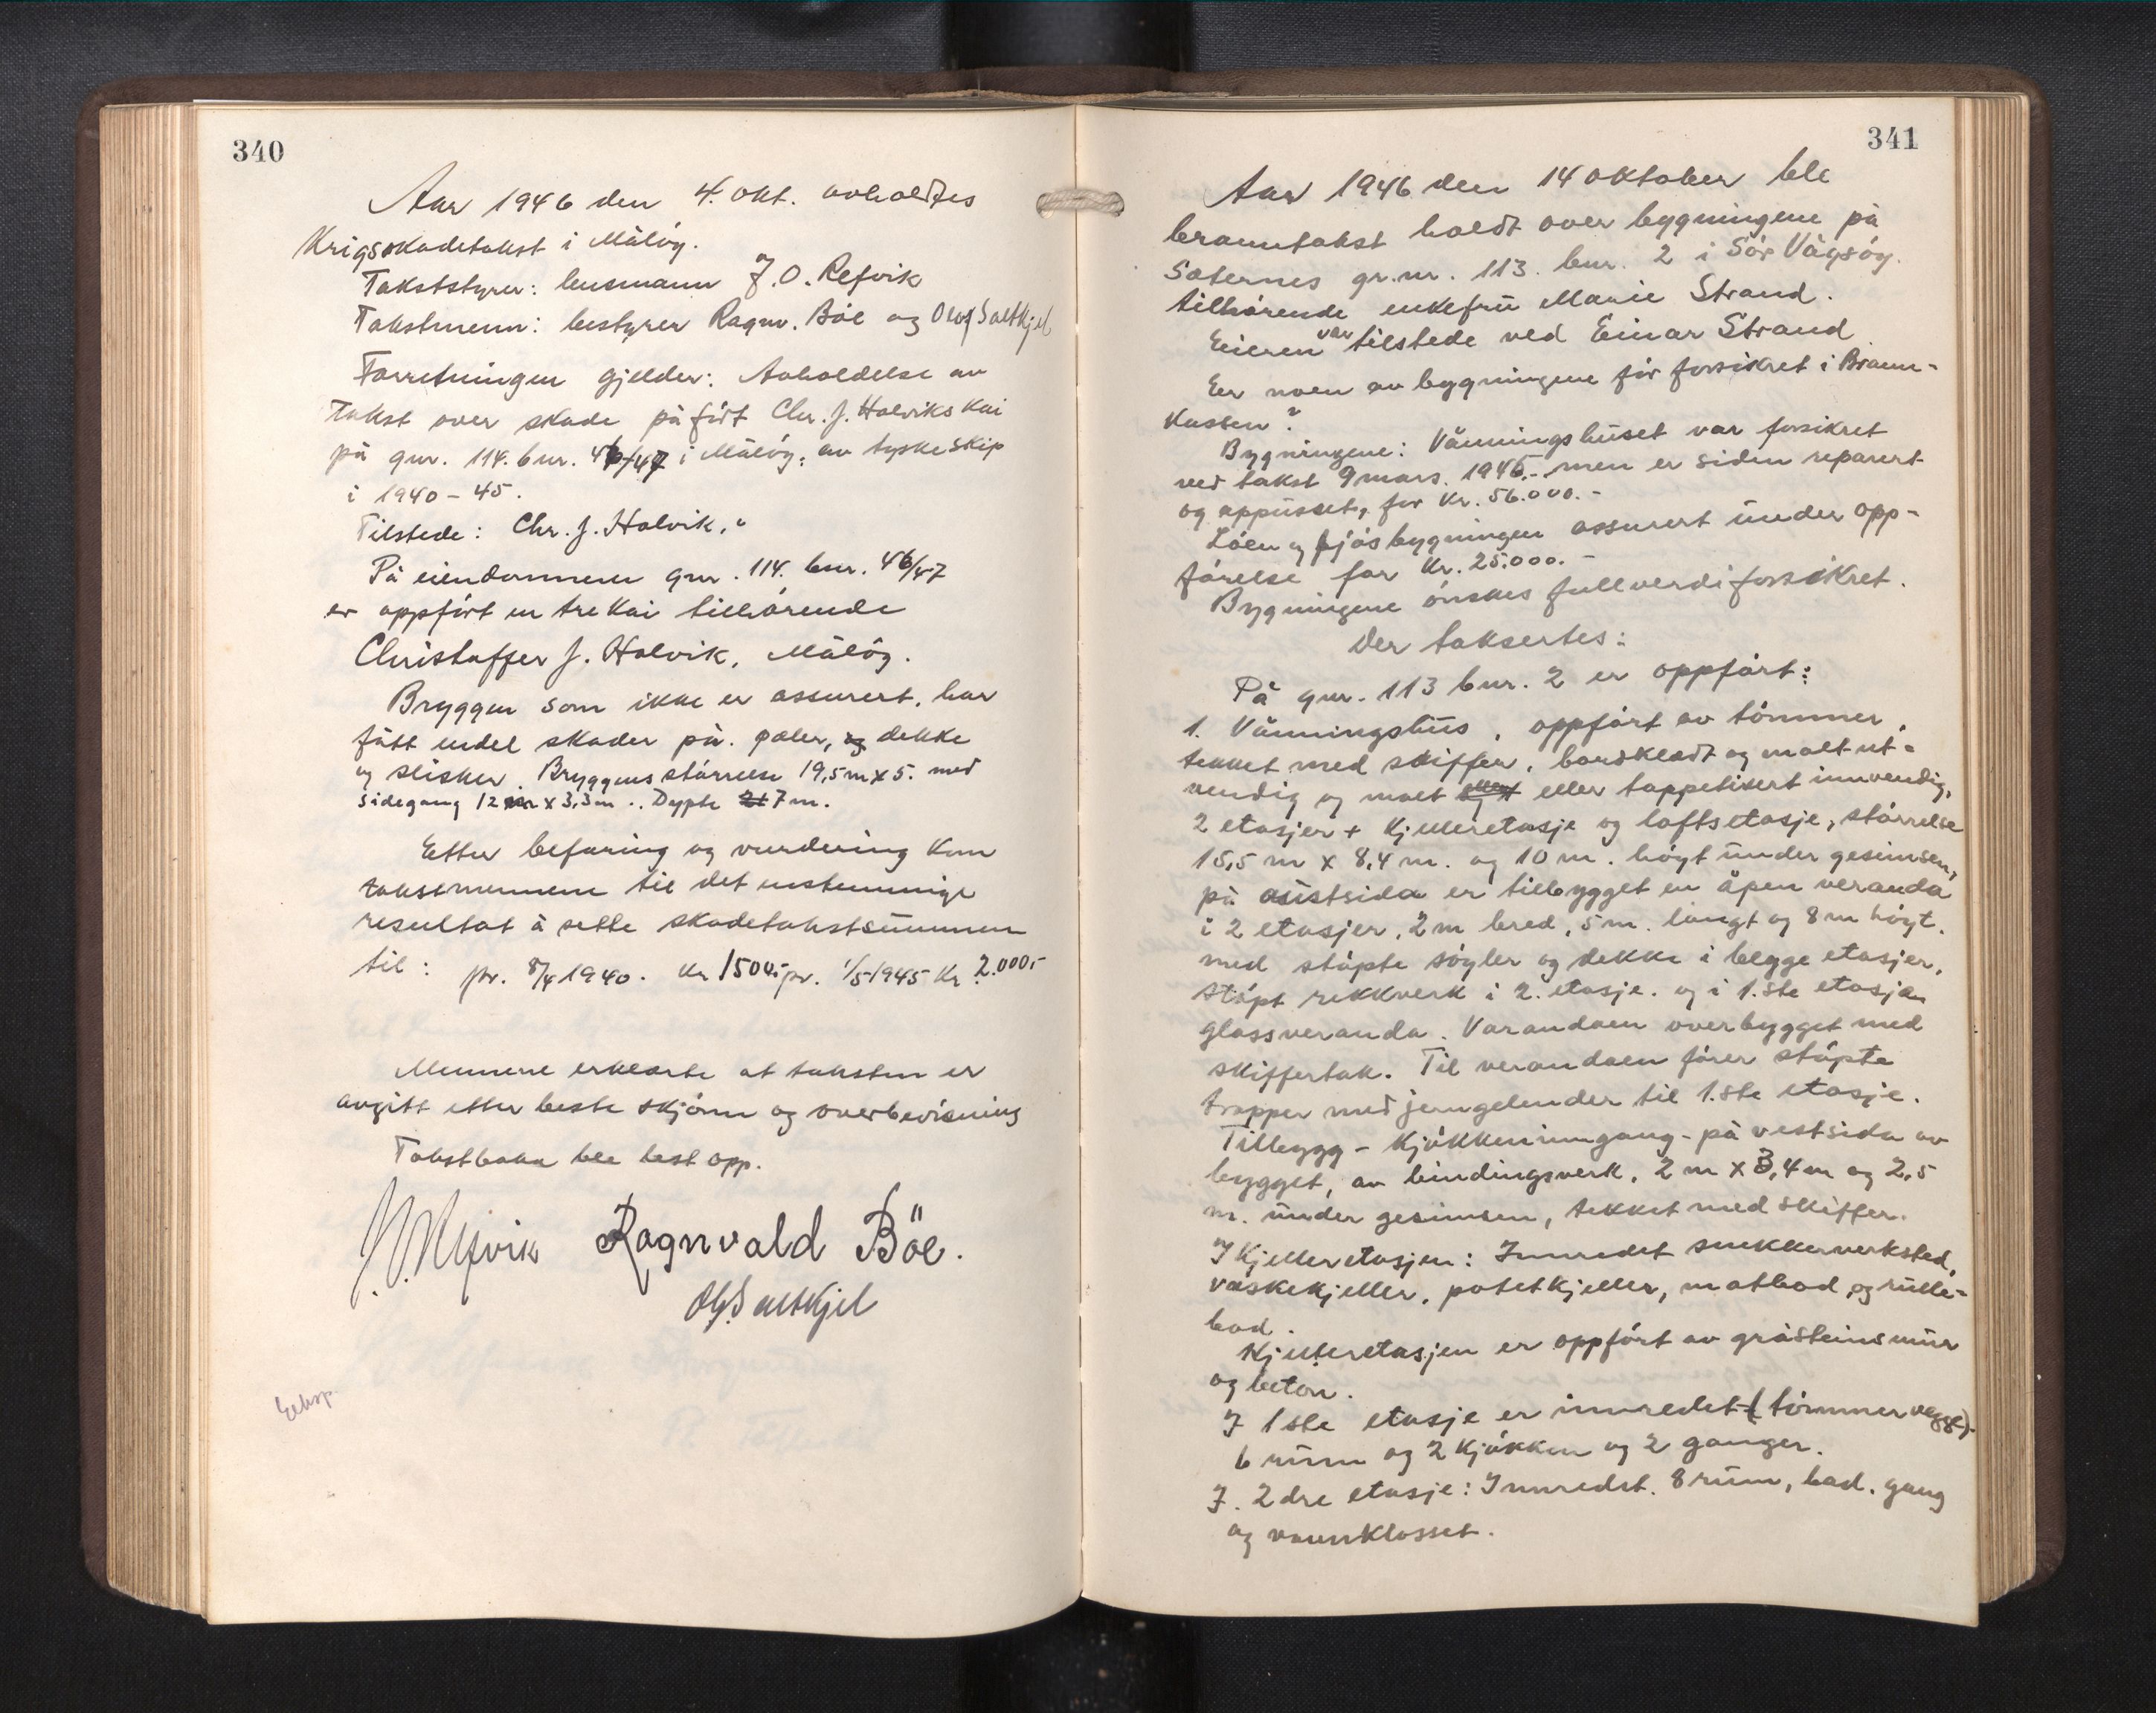 340
Aar 1946 den 4. okt. avholdtes
Krigsskadetakst i Måløy.
Takststyrer: lensmann J. O. Refvik
Takstmenn: bestyrer Ragnv. Böe og Olaf Saltkjel
Forretningen gjelder: Avholdelse av
takst over skade påført Chr. J. Halviks kai
på gnr. 114. bnr. 46/47 i Måløy, av tyske skip
i 1940-45.
Tilstede: Chr. J. Halvik.
På eiendommen gnr. 114. bnr. 46/47
er oppført en trekai tilhørende
Christoffer J. Halvik, Måløy.
Bryggen som ikke er assurert, har
fått endel skader på. pæler, og dekke
og slisker. Bryggens størrelse 19,5 m x 5. med
sidegang 12 m x 3,3 m.. Dypte 7 m.
Etter befaring og vurdering kom
takstmennene til det enstemmige
resultat å sette skadetakstsummen
til: pr. 8/4 1940. kr 1500,- pr. 1/5 1945 kr. 2.000,-
Mennene erklærte at taksten er
avgitt etter beste skjønn og overbevisning
Takstboka ble lest opp.
J.O. Refvik Ragnvald Böe.
Ol. Saltkjel
Eksp.
341
Aar 1946 den 14 oktober ble
branntakst holdt over bygningene på
Sæternes gr.nr. 113. bnr. 2 i Sør Vågsøy.
tilhørende enkefru Marie Strand.
Eieren var tilstede ved Einar Strand
Eer noen av bygningene før forsikret i Brann-
kassen?
Bygningene: Våningshuset var forsikret
ved takst 9 mars. 1945.- men er siden reparert
og oppusset, for kr. 56.000.-
Løen og fjøsbygningen assurert under opp-
førelse for kr. 25.000.-
Bygningene ønskes fullverdiforsikret.
Der taksertes:
På gnr. 113 bnr. 2 er oppført:
1. Våningshus, oppført av tømmer,
tekket med skiffer, bordkledt og malt ut-
vendig og malt eller tappetisert innvendig,
2 etasjer + kjelleretasje og loftsetasje, størrelse
15,5 m x 8,4 m. og 10 m. høyt under gesimsen,
på austsida er tilbygget en åpen veranda
i 2 etasjer, 2 m bred, 5 m. langt og 8 m høyt.
med støpte søyler og dekke i begge etasjer,
støpt rekkverk i 2. etasje. og i 1.ste etasjen
glassveranda. Varandaen overbygget med
skiffertak. Til verandaen fører støpte
trapper med jerngelender til 1.ste etasje.
Tilbygg - kjøkkeninngang - på vestsida av
bygget, av bindingsverk, 2 m x 3,4 m og 2,5
m. under gesimsen, tekket med skiffer.
I Kjelleretasjen: Innredet snekkerverksted,
vaskekjeller, potetkjeller, matbod, og rulle-
bod.
Kjelleretasjen er oppført av gråsteinsmur
og beton.
I 1ste etasje er innredet (tømmervegge).
6 rum og 2 kjøkken og 2 ganger.
I. 2dre etasje: Innredet. 8 rum, bad, gang
og vannklosset.